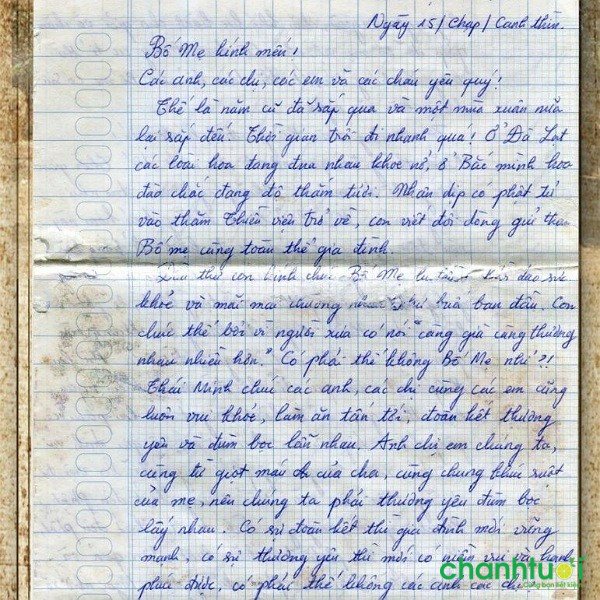 Ngày 15/Chạp/Canh thìn.
Bố Mẹ kính mến!
Các anh, các chị, các em và các cháu yêu quý!
Thế là năm cũ đã sắp qua và một mùa xuân nữa
lại sắp đến. Thời gian trôi đi nhanh quá! Ở Đà Lạt
các loài hoa đang đua nhau khoe nở, ở Bắc mình hoa
đào chắc đang độ thắm tươi. Nhân dịp có phật tử
vào thăm Thiền viện trở về, con viết đôi dòng gửi thăm
Bố mẹ cùng toàn thể gia đình.
Đầu thư con kính chúc Bố Mẹ dồi dào sức
khỏe và mãi mãi thương nhau như thủa ban đầu. Con
chúc thế bởi vì người xưa có nói "càng già càng thương
nhau nhiều hơn." Có phải thế không Bố Mẹ nhỉ?!
Thái Minh chúc các anh, các chị cùng các em cũng
luôn vui khỏe, làm ăn tấn tới, đoàn kết thương
yêu và đùm bọc lẫn nhau. Anh chị em chúng ta,
cùng từ giọt máu của cha, cùng chung khúc ruột
của mẹ, nên chúng ta phải thương yêu đùm bọc
lấy nhau. Có sự đoàn kết thì gia đình mới vững
mạnh, có sự thương yêu thì mới có niềm vui và hạnh
phúc được, có phải thế không các anh các chị
chanhtuoi
Cùng bạn tiết kiệm